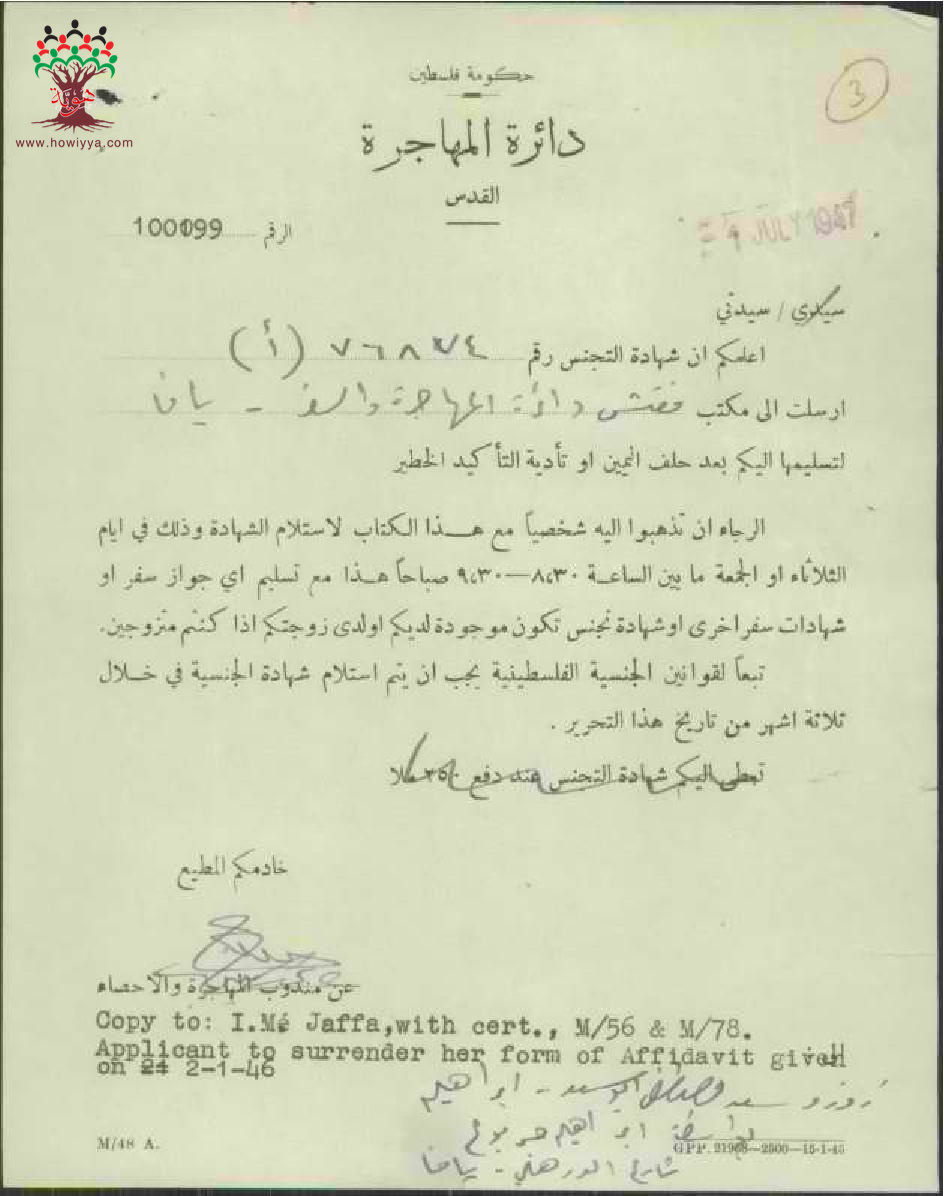 هوية
www.howiyya.com
حكومة فلسطين
3
دائرة المهاجرة
القدس
الرقم 100199
JULY 1947
سيدي / سيدتي
اعلمكم ان شهادة التجنس رقم ٧٦٨٧٤ (أ)
ارسلت الى مكتب مفتش دائرة المهاجرة والسفر - يافا
لتسليمها اليكم بعد حلف اليمين او تأدية التأكيد الخطير
الرجاء ان تذهبوا اليه شخصياً مع هذا الكتاب لاستلام الشهادة وذلك في ايام
الثلاثاء او الجمعة ما بين الساعة ٨،٣٠—٩،٣٠ صباحاً هذا مع تسليم اي جواز سفر او
شهادات سفر اخرى او شهادة تجنس تكون موجودة لديكم او لدى زوجتكم اذا كنتم متزوجين.
تبعاً لقوانين الجنسية الفلسطينية يجب ان يتم استلام شهادة الجنسية في خلال
ثلاثة اشهر من تاريخ هذا التحرير .
تعطى اليكم شهادة التجنس عند دفع ٢٥٠ ملا
خادمكم المطيع
عن مندوب المهاجرة والاحصاء
Copy to: I.M. Jaffa,with cert., M/56 & M/78.
Applicant to surrender her form of Affidavit given
on 24 2-1-46
روز سعد ابراهيم
بواسطة ابراهيم
شارع - يافا
M/48 A.
GPP. 21968—2500—15-1-45